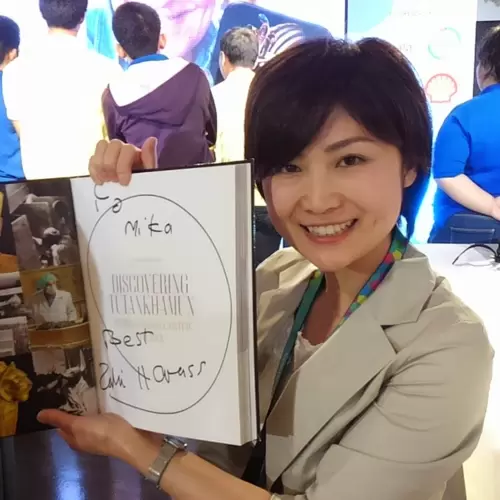 To
Mika
DISCOVERING
TUTANKHAMUN
Best
Zahi Hawass